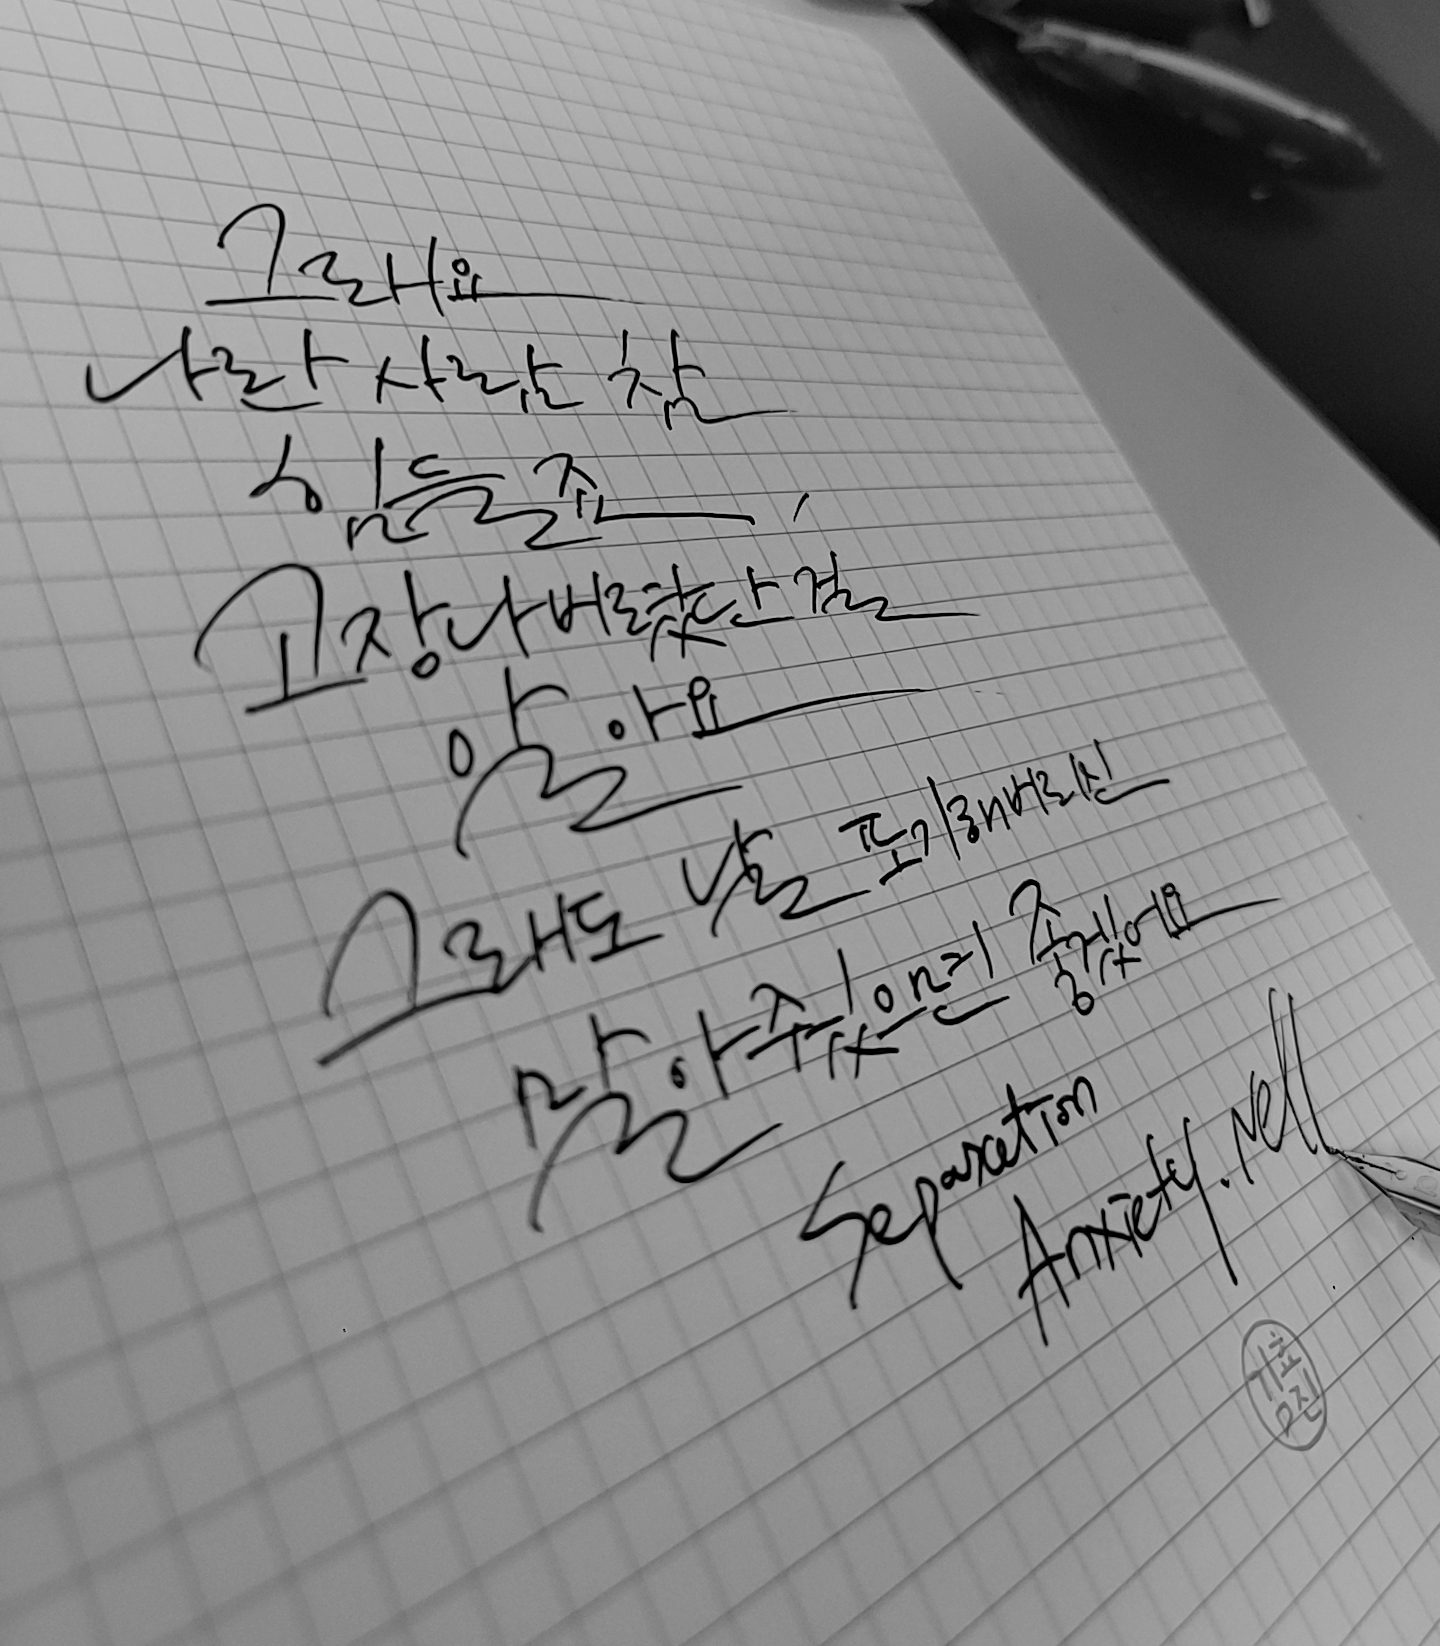 그래요
나란 사람 참
힘들죠
고장나버렸단 걸
알아요
그래도 날 포기해버리신
말아줬으면 좋겠어요
Separation
Anxiety. Nell
김효진